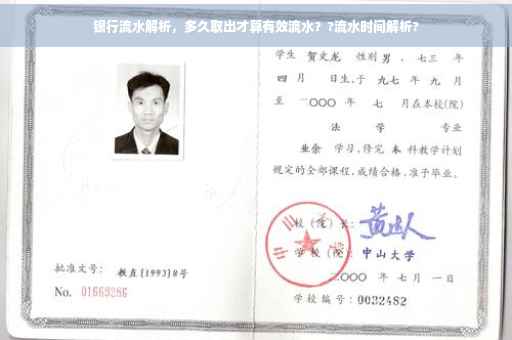 银行流水解析，多久取出才算有效流水？?流水时间解析?
学生 贺文龙 性别 男 ．七三 年
四 月 日生,于 九七 年 九 月
至 二〇〇〇 年 七 月在本校(院)
法 学 专业
业余 学习,修完 本 科教学计划
规定的全部课程,成绩合格,准予毕业。
校 (院) 长:
学 校 (院): 中山大学
二〇〇〇 年 七 月 一 日
批准文号: 教直[1993]8号
No. 01669286
学校编号: 0032482